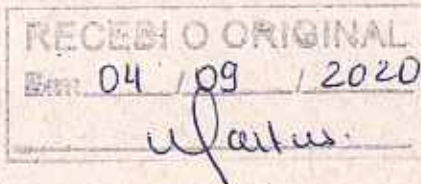 RECEBI O ORIGINAL
Em: 04 / 09 / 2020